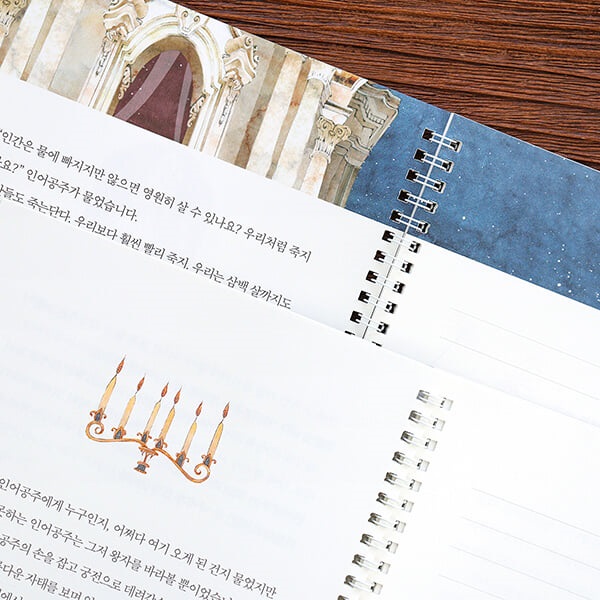 "인간은 물에 빠지지만 않으면 영원히 살 수 있나요? 우리처럼 죽지
요?" 인어공주가 물었습니다.
들도 죽는단다. 우리보다 훨씬 빨리 죽지. 우리는 삼백 살까지도
인어공주에게 누구인지, 어쩌다 여기 오게 된 건지 물었지만
못하는 인어공주는 그저 왕자를 바라볼 뿐이었습니다
공주의 손을 잡고 궁전으로 데려갔습
다운 자태를 보며